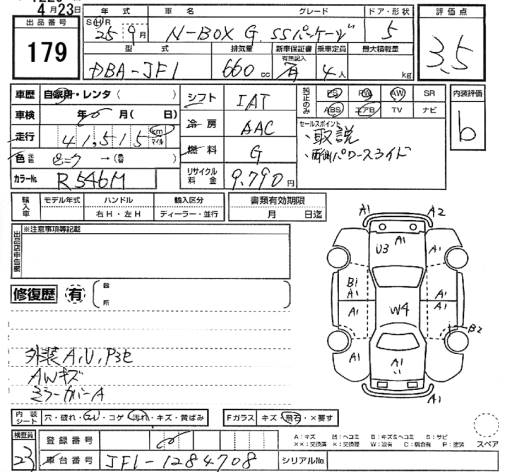 4月23日
出品番号
179
年式
グレード
ドア・形状
評価点
25年9月
N-BOX G SSパッケージ
5
3.5
型式
排気量
新車保証書
有無記入
乗車定員
最大積載量
DBA-JF1
660cc
有
4人
kg
車歴
自家用・レンタ( )
シフト
IAT
ES PW AW SR
ABS エアB TV ナビ
内装評価
b
車検
年 月( 日)
冷房
AAC
セールスポイント
・取説
・両側パワースライド
走行
41,515
km
マイル
燃料
G
色
→(色)
リサイクル料金
9,790
カラーNo.
R546M
輸入車
モデル年式
ハンドル
輸入区分
書類有効期限
右H・左H
ディーラー・並行
月 日迄
※注意事項等記載
修復歴
有
箇所
A1
A2
U3
A1
B1
A1
A1
W4
A1
A1
A1
B2
A1
A1
A1
外装A,U,P3セ
AWキズ
ミラーカバーA
内装シート
穴・破れ・コゲ・汚れ・キズ・黄ばみ
Fガラス
キズ・飛石・×要す
スペア
検査員
23
登録番号
A:キズ
U:ヘコミ
B:キズ&ヘコミ
S:サビ
XX:交換済
X:交換
W:波有
C:腐食有
P:塗装
車台番号
JF1-1284708
シリアルNo.